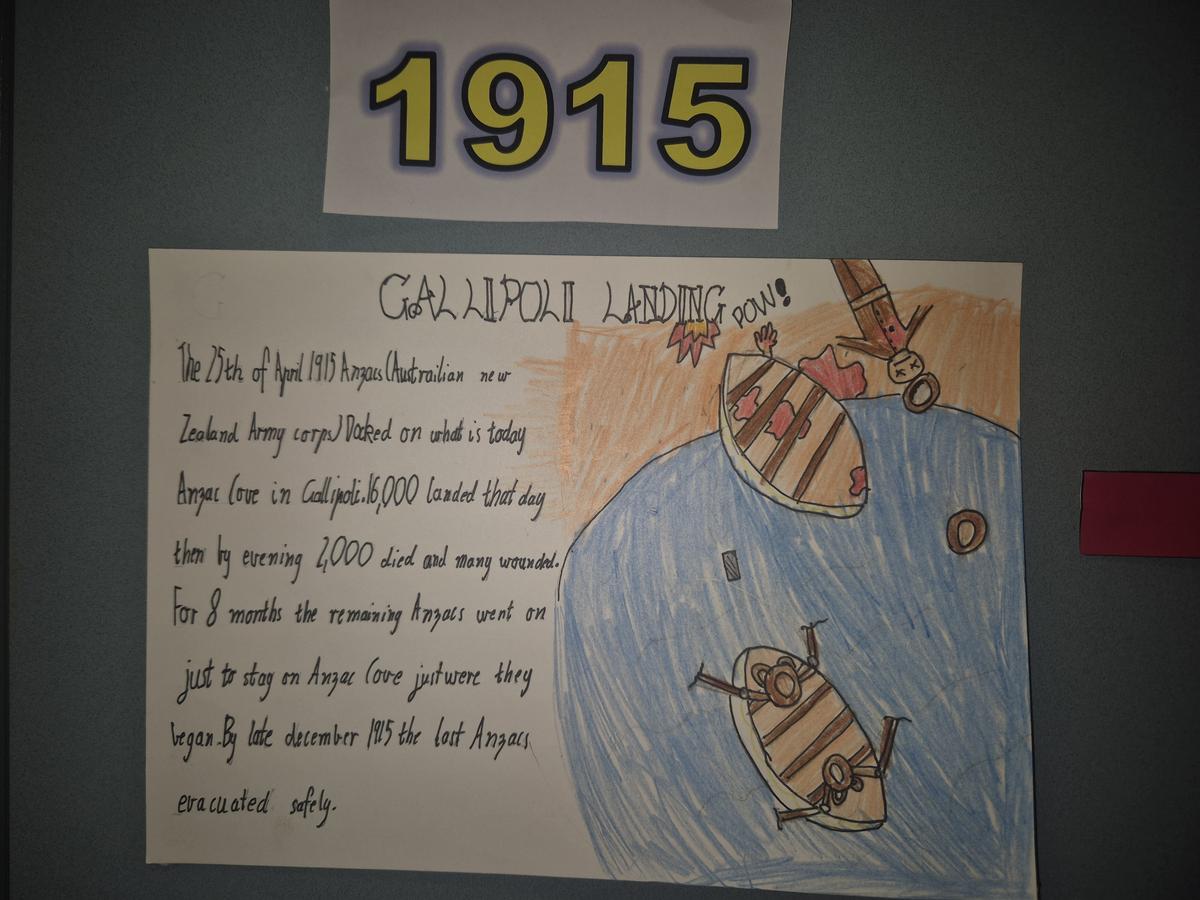 1915
GALLIPOLI LANDING
POW!
The 25th of April 1915 Anzacs (Austrailian new
Zealand Army corps) Docked on what is today
Anzac Cove in Gallipoli. 16,000 landed that day
then by evening 2,000 died and many wounded.
For 8 months the remaining Anzacs went on
just to stay on Anzac Cove just were they
began. By late december 1915 the last Anzacs
evacuated safely.